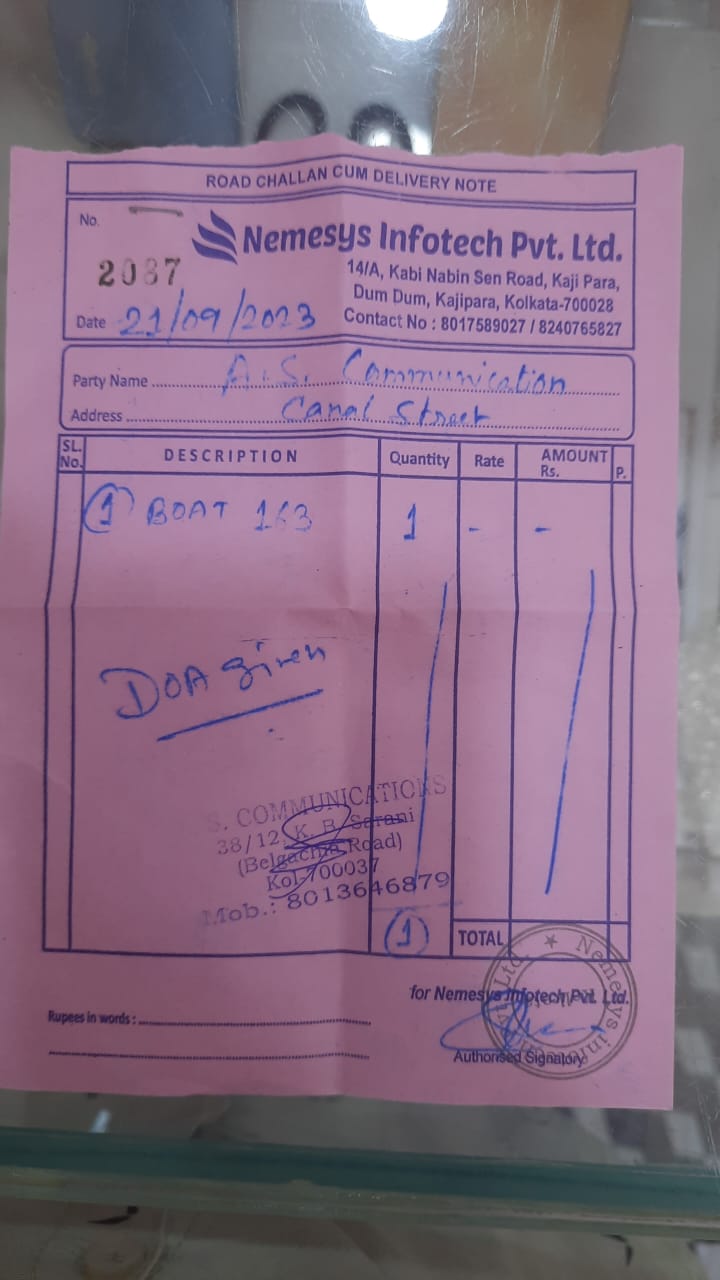 ROAD CHALLAN CUM DELIVERY NOTE
No.
2087
Nemesys Infotech Pvt. Ltd.
14/A, Kabi Nabin Sen Road, Kaji Para,
Dum Dum, Kajipara, Kolkata-700028
Contact No : 8017589027 / 8240765827
Date 21/09/2023
Party Name A.S. Communication
Address Canal Street
SL. No. DESCRIPTION Quantity Rate AMOUNT Rs. P.
1 BOAT 163 1 - -
DOA given
S. COMMUNICATIONS
38/12, K. B. Sarani
(Belgachia Road)
Kol-700037
Mob.: 8013646879
1 TOTAL
for Nemesys Infotech Pvt. Ltd.
Rupees in words :
Authorised Signatory
Nemesys In Ltd.